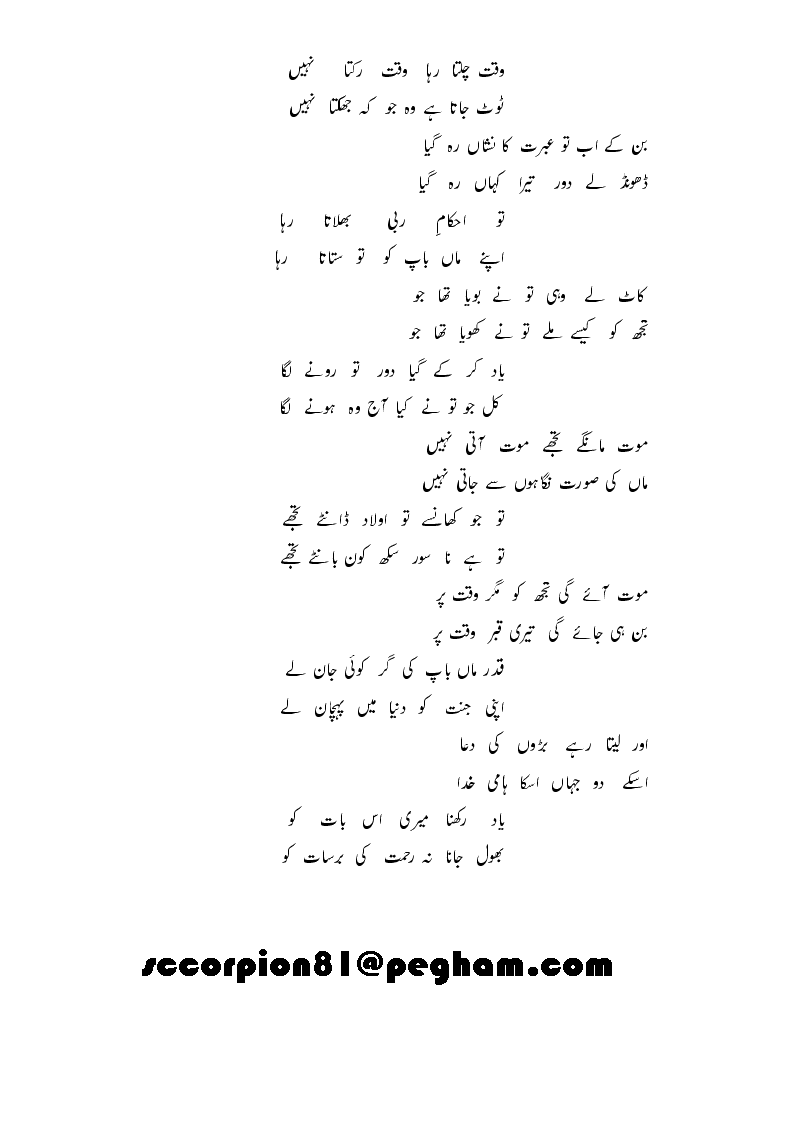 وقت چلتا رہا وقت رکتا نہیں
ٹوٹ جاتا ہے وہ جو کہ جھکتا نہیں
بن کے اب تو عبرت کا نشاں رہ گیا
ڈھونڈ لے دور تیرا کہاں رہ گیا
تو احکامِ ربی بھلاتا رہا
اپنے ماں باپ کو تو ستاتا رہا
کاٹ لے وہی تو نے بویا تھا جو
تجھ کو کیسے ملے تو نے کھویا تھا جو
یاد کر کے گیا دور تو رونے لگا
کل جو تو نے کیا آج وہ ہونے لگا
موت مانگے تجھے موت آتی نہیں
ماں کی صورت نگاہوں سے جاتی نہیں
تو جو کھانسے تو اولاد ڈانٹے تجھے
تو ہے نا سور سکھ کون بانٹے تجھے
موت آئے گی تجھ کو مگر وقت پر
بن ہی جائے گی تیری قبر وقت پر
قدر ماں باپ کی گر کوئی جان لے
اپنی جنت کو دنیا میں پہچان لے
اور لیتا رہے بڑوں کی دعا
اسکے دو جہاں اسکا ہامی خدا
یاد رکھنا میری اس بات کو
بھول جانا نہ رحمت کی برسات کو
sccorpion81@pegham.com